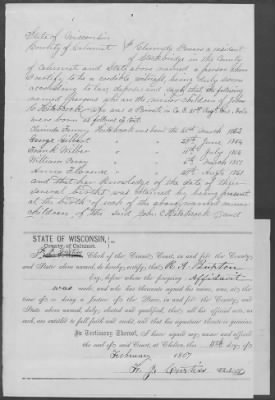 State of Wisconsin
County of Calumet Clarinda Brown a resident
of Stockbridge in the County
of Calumet and State above named a person whom
I certify to be a credible witness, being duly sworn
according to law deposes and says that the following
named persons who are the minor children of John
C. Hitchcock who was a Private in Co. 21st Regt. Wis. Vols
were born as follows to wit
Clarinda Fanny Hitchcock was born the March 1862
George Gilbert " " 28th June 1864
Frank Wilber " " July 1856
William Perry " " 6th March 1857
Anna Florence " " Augt. 1861
and that her knowledge of the date of their
several births was obtained by being present
at the birth of each of the above named minor
children of the said John C. Hitchcock
STATE OF WISCONSIN,
County of Calumet.
Clerk of the Circuit Court, in and for the County
and State above named, do hereby certify, that
Esq., before whom the foregoing Affidavit
was made, and who has thereunto signed his name, was, at the
time of so doing a Justice of the Peace, in and for the County
and State above named, duly elected and qualified; that all his official acts, as
such, are entitled to full faith and credit, and that his signature thereto is genuine.
In Testimony Whereof, I have signed my name and affixed
the seal of said Court, at Chilton, this 11th day of
February 1867
Curtiss Clerk